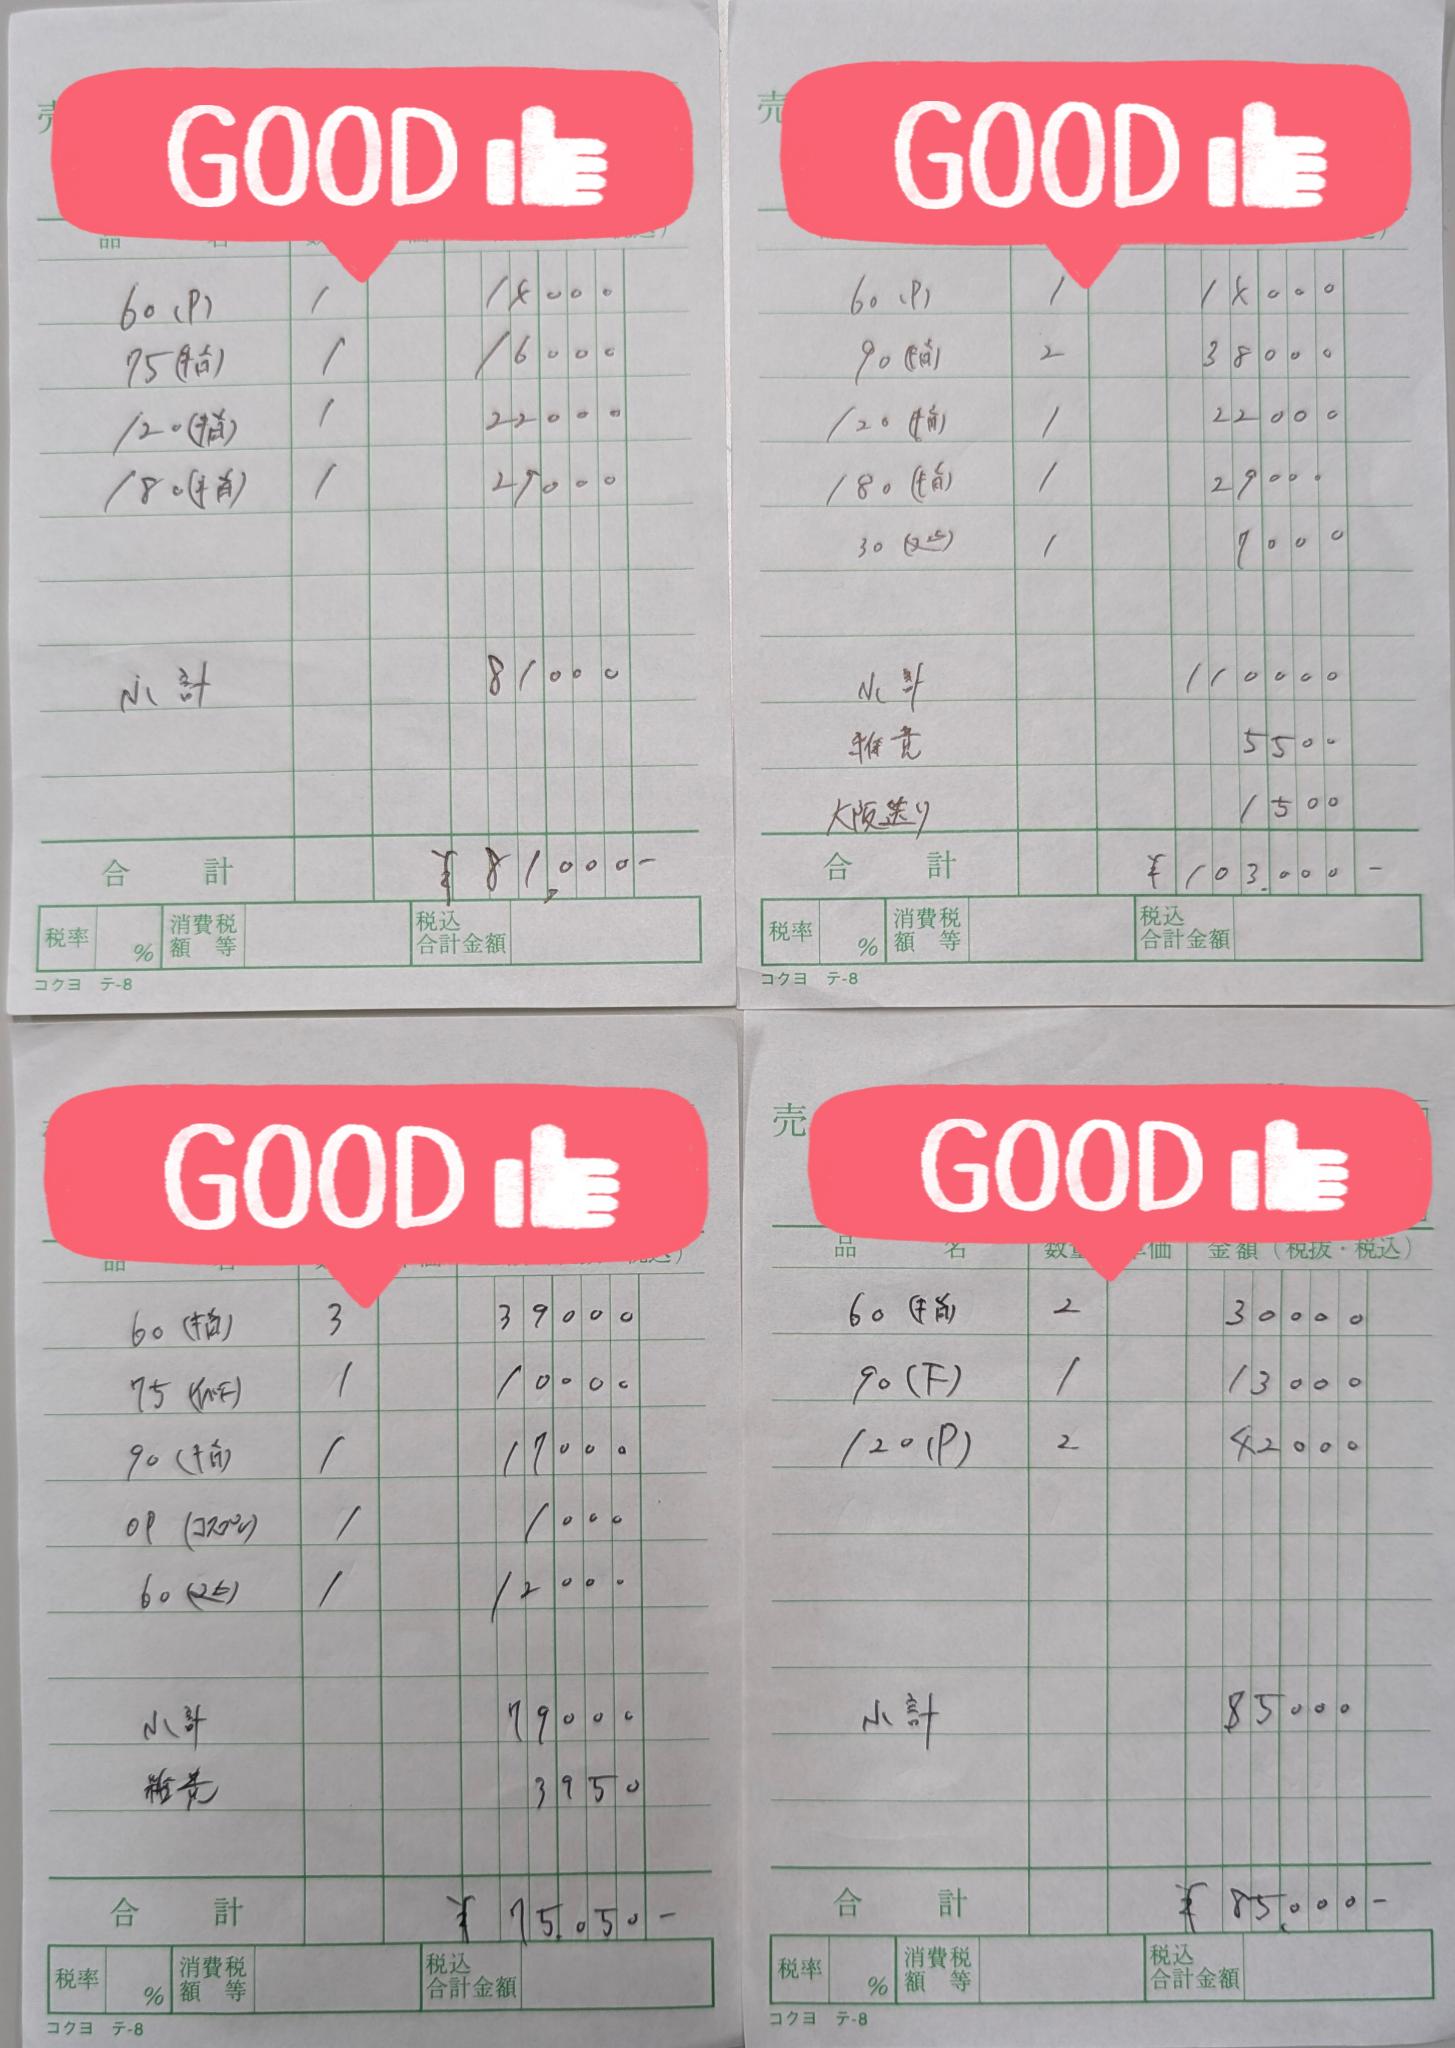 売
GOOD
品 名
60(P) 1 14000
75(指) 1 16000
120(指) 1 22000
180(指) 1 29000
小計 81000
合計 ¥81,000-
税率 % 消費税額等 税込合計金額
コクヨ テ-8
売
GOOD
60(P) 1 14000
90(指) 2 38000
120(指) 1 22000
180(指) 1 29000
30 1 7000
小計 110000
雑費 5500
大阪送り 1500
合計 ¥103.000-
税率 % 消費税額等 税込合計金額
コクヨ テ-8
GOOD
品 名
60(指) 3 39000
75 1 10000
90(指) 1 17000
OP (コスプレ) 1 1000
60 1 12000
小計 79000
雑費 3950
合計 ¥75.050-
税率 % 消費税額等 税込合計金額
コクヨ テ-8
売
GOOD
品 名 数量 単価 金額(税抜・税込)
60(指) 2 30000
90(下) 1 13000
120(P) 2 42000
小計 85000
合計 ¥85,000-
税率 % 消費税額等 税込合計金額
コクヨ テ-8